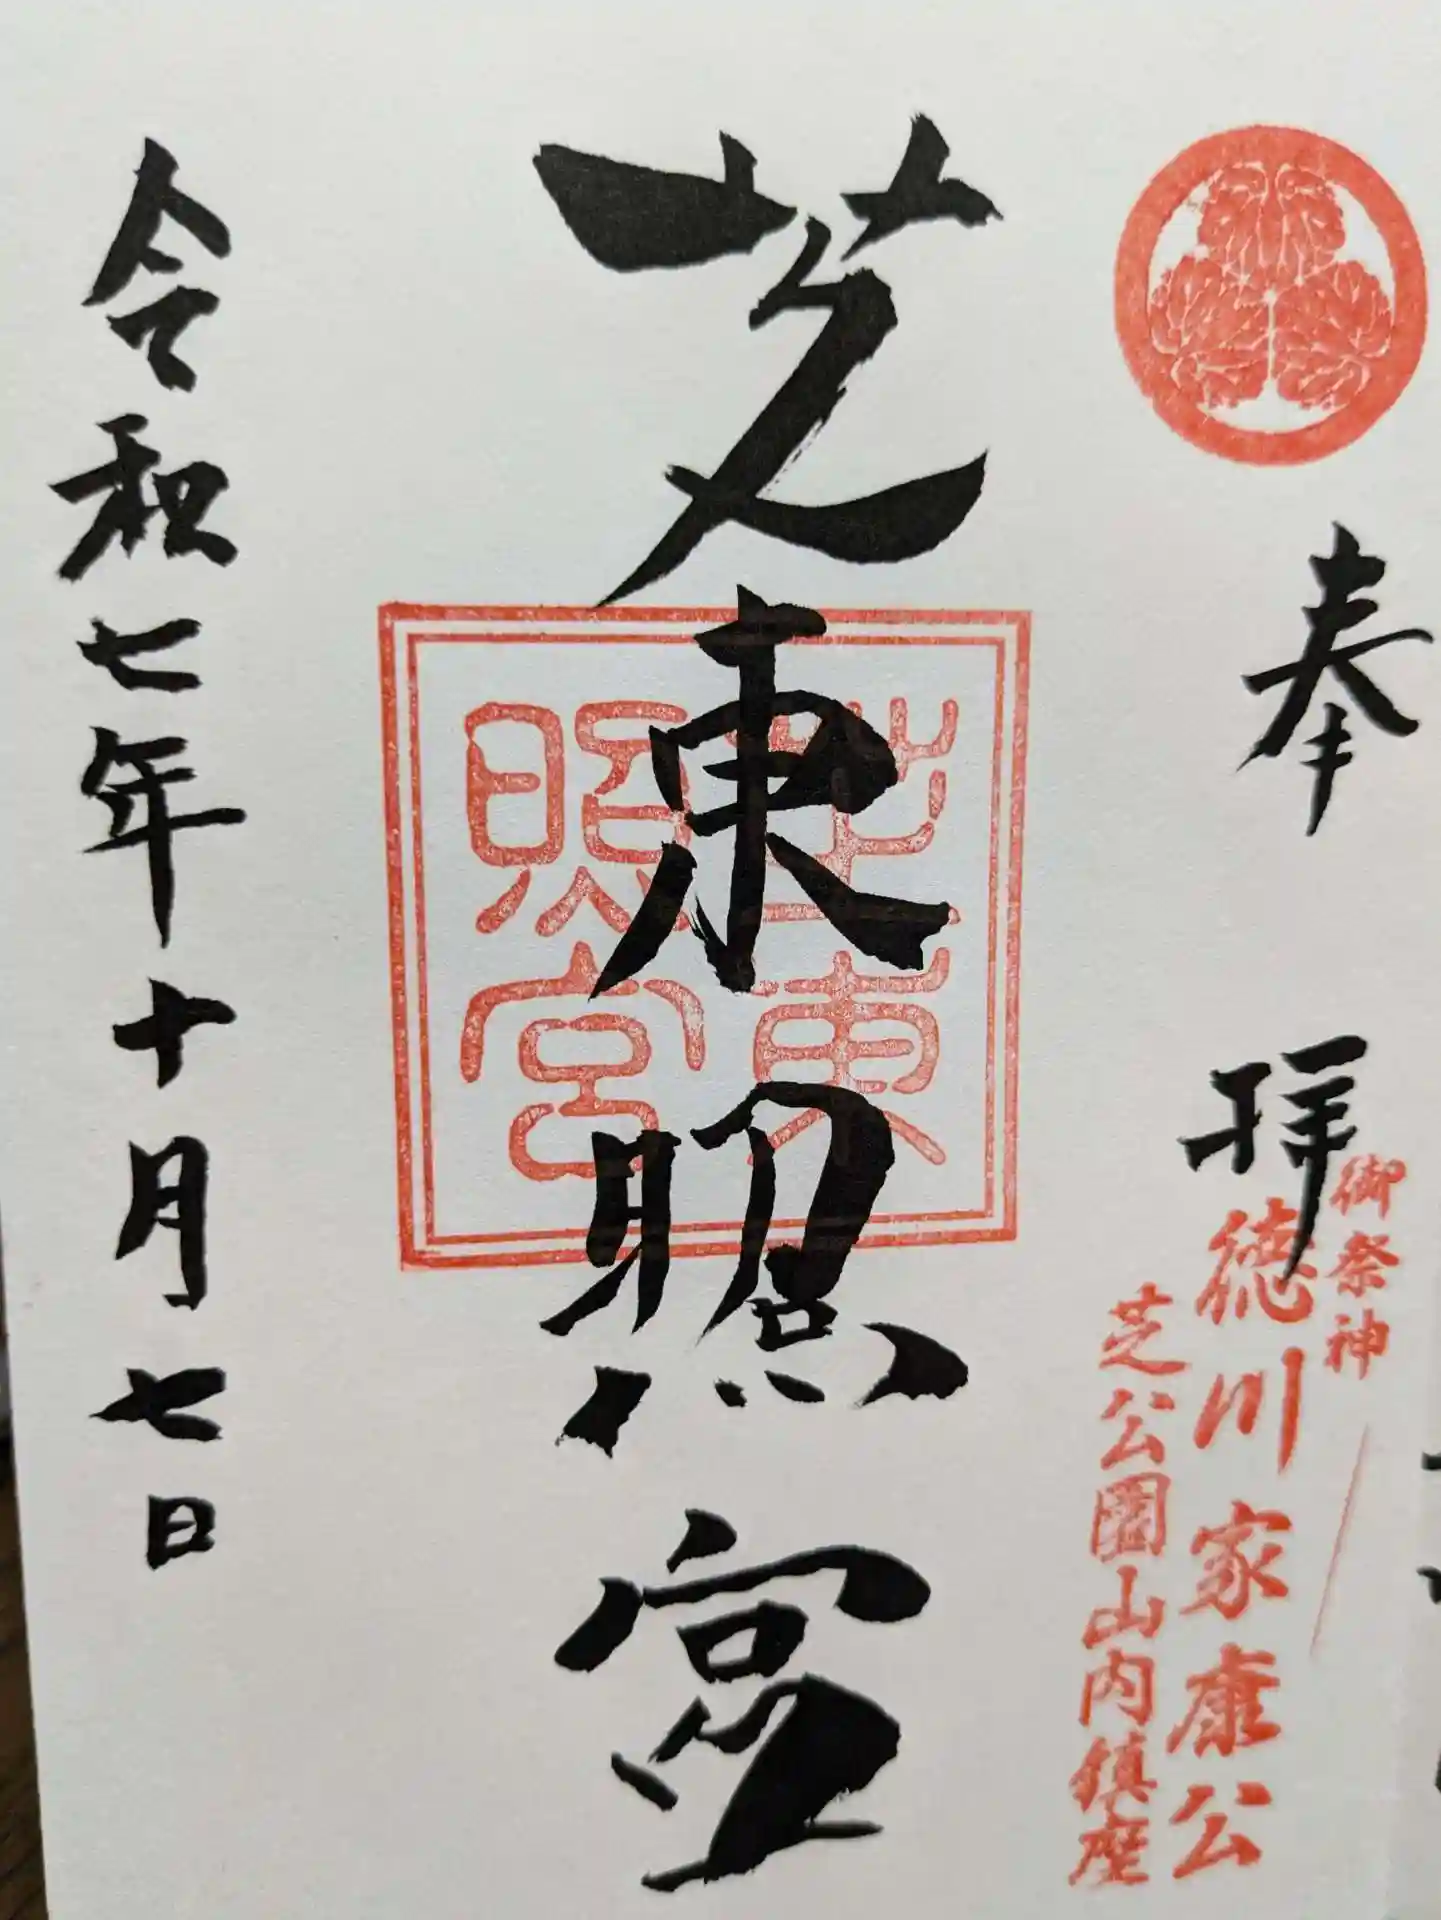 奉拝
御祭神
徳川家康公
芝公園山内鎮座
芝東照宮
芝東
照宮
令和七年十月七日